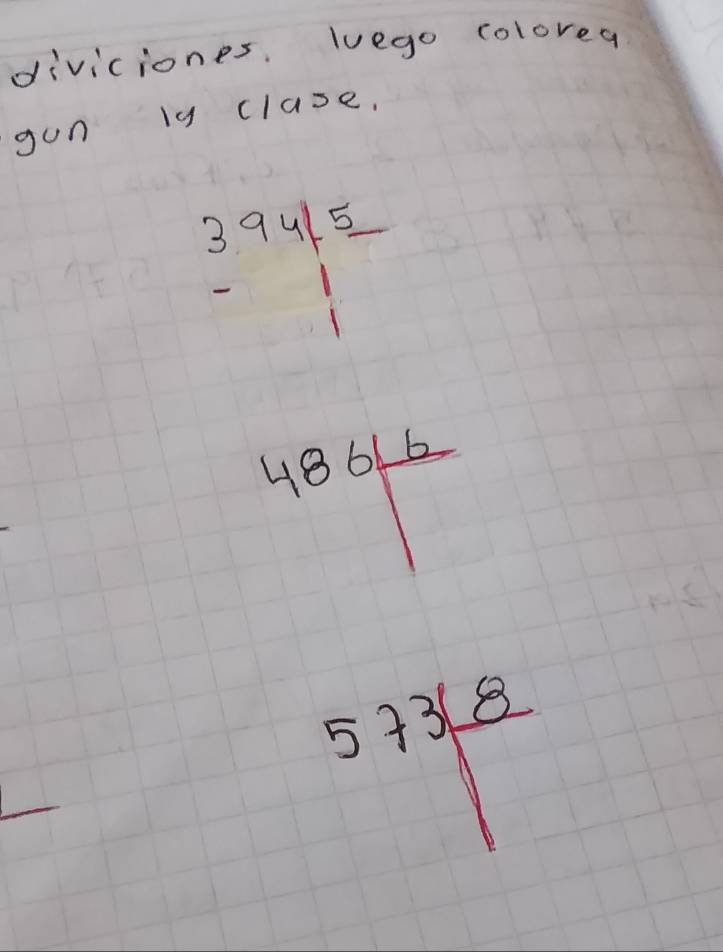 diviciones. luego colorea
gun la clase.
394 5
-
486 6
573 8